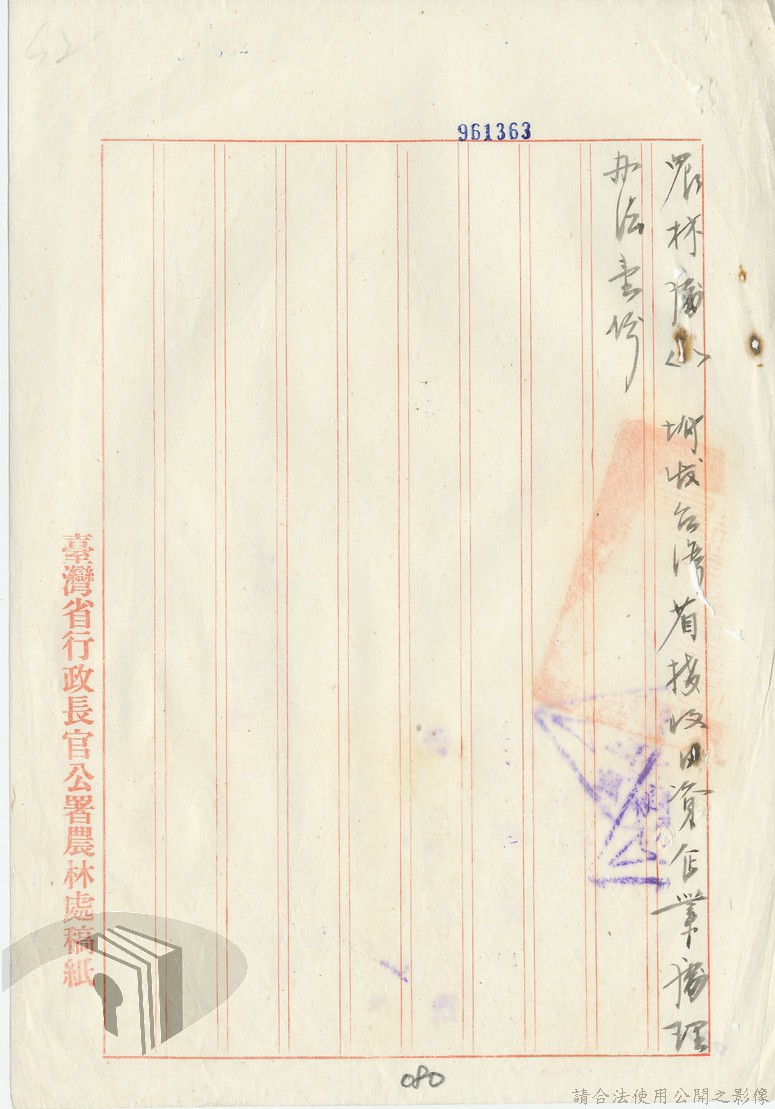 961363
農林處公 坿發台灣省接收日資企業處理
办法壹份
臺灣省行政長官公署農林處稿紙
080
請合法使用公開之影像